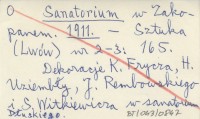 O Sanatorium w Zako-
panem. 1911. — Sztuka
(Lwów) nr 2-3: 165.
Dekoracje K. Frycza, H.
Uziembły, J. Rembowskiego
i S. Witkiewicza w sanatorium
Dłuskiego. BT/063/0547